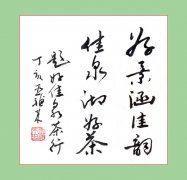 好景涵佳韵
佳泉沏好茶
题好佳泉茶行
丁亥